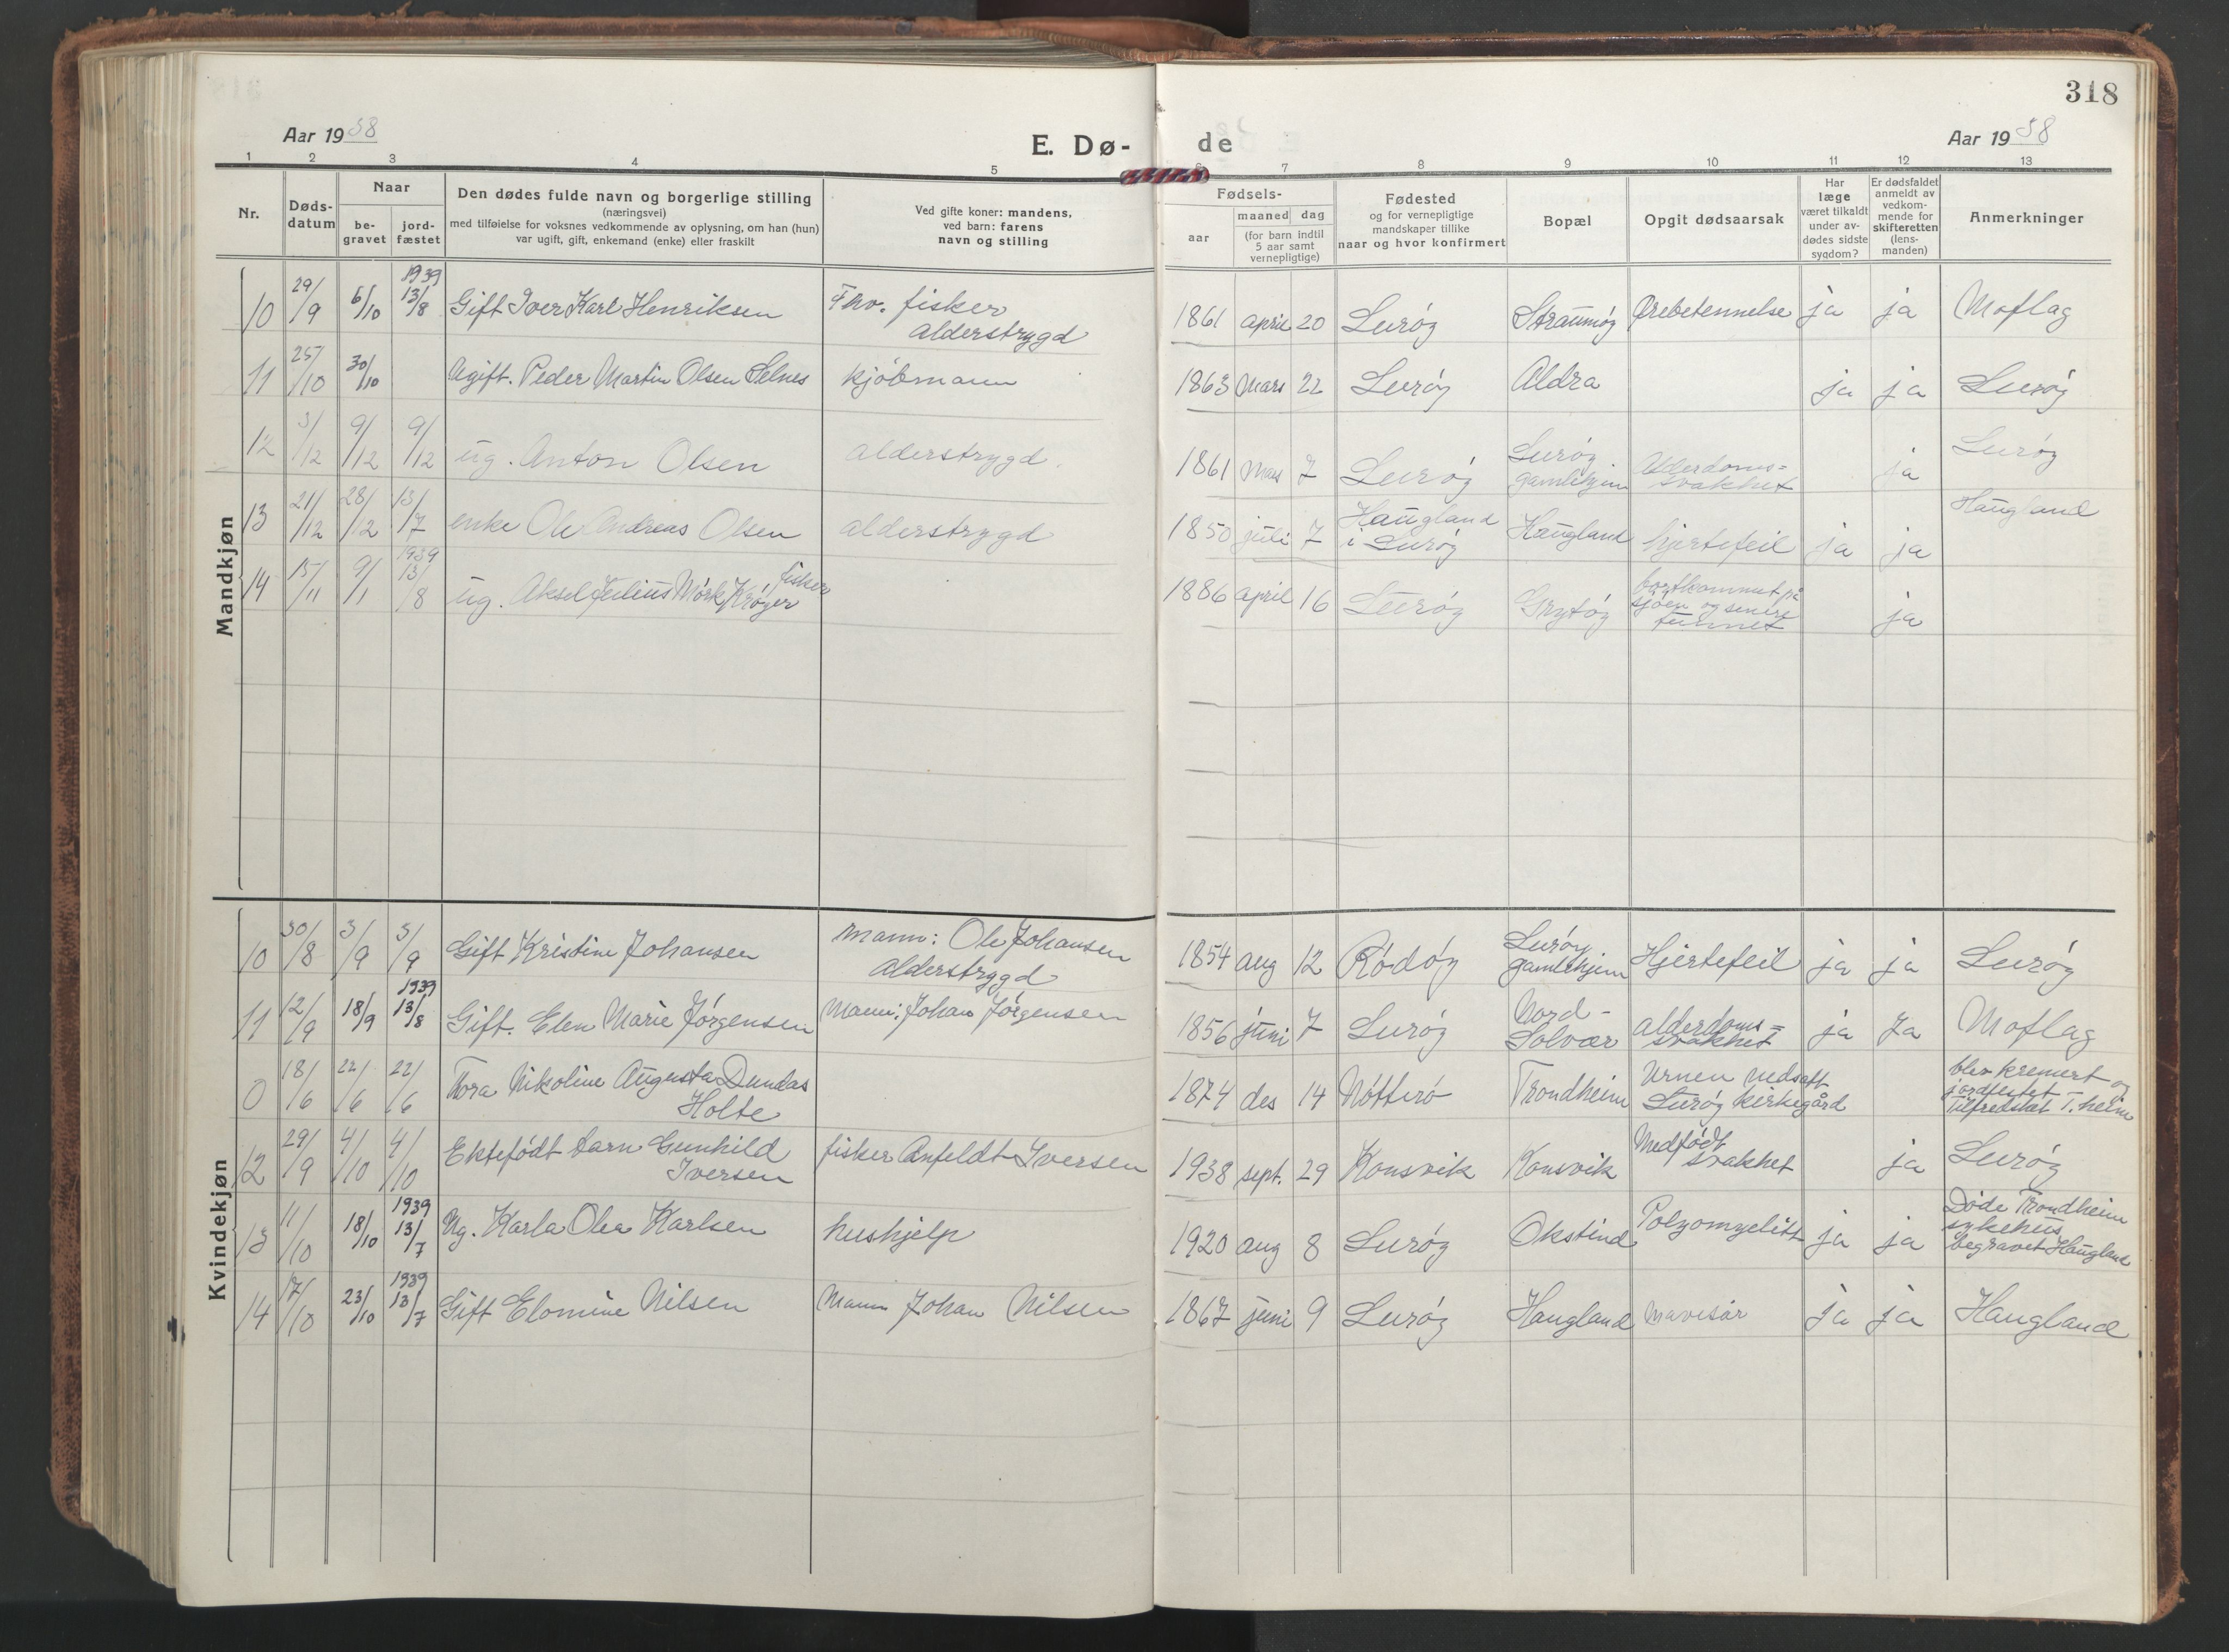 318
Aar 1938
E. Dø-
de
Aar 1938
1 2 3 4 5 6 7 8 9 10 11 12 13
Nr.
Døds-
datum
Naar
be-
gravet
jord-
fæstet
Den dødes fulde navn og borgerlige stilling
(næringsvei)
med tilføielse for voksnes vedkommende av oplysning, om han (hun)
var ugift, gift, enkemand (enke) eller fraskilt
Ved gifte koner: mandens,
ved barn: farens
navn og stilling
Fødsels-
aar
maaned dag
(for barn indtil
5 aar samt
vernepligtige)
Fødested
og for vernepligtige
mandskaper tillike
naar og hvor konfirmert
Bopæl
Opgit dødsaarsak
Har
læge
været tilkaldt
under av-
dødes sidste
sygdom?
Er dødsfaldet
anmeldt av
vedkom-
mende for
skifteretten
(lens-
manden)
Anmerkninger
Mandkjøn
10 29/9 6/10 1939 13/8 Gift Iver Karl Henriksen Fhv. fisker
alderstrygd
1861 april 20 Lurøy Straumøy Ørebetennelse ja ja Moflag
11 25/10 30/10 Ugift. Peder Martin Olsen Selnes kjøbmann 1863 Mars 22 Lurøy Aldra ja ja Lurøy
12 3/12 9/12 9/12 ug. Anton Olsen alderstrygd. 1861 Mars 7 Lurøy Lurøy
gamlehjem Alderdoms=
svakhet ja Lurøy
13 21/12 28/12 13/7 enke Ole Andreas Olsen alderstrygd 1850 juli 7 Haugland
i Lurøy Haugland hjertefeil ja ja Haugland
14 15/11 9/1 1939 13/8 ug. Aksel Julius Mørk Krøyer, fisker 1886 april 16 Lurøy Grytøy bortkommet på
sjøen og senere
funnet ja
Kvindekjøn
10 30/8 3/9 3/9 Gift Kristine Johansen Mann: Ole Johansen
Alderstrygd
1854 aug 12 Rødøy Lurøy
gamlehjem Hjertefeil ja ja Lurøy
11 12/9 18/9 1939 13/8 Gift. Elen Marie Jørgensen Mann: Johan Jørgensen 1856 juni 7 Lurøy Nord-
Solvær alderdoms=
svakhet ja Ja Moflag
0 18/6 22/6 22/6 Tora Nikoline Augusta Dundas
Holte
1874 des 14 Nøtterø Trondheim Urnen nedsatt
Lurøy kirkegård blev kremert og
jordfestet
Tilfredshet T.heim
12 29/9 4/10 4/10 Ektefødt barn Gunhild
Iversen fisker Anfeldt Iversen
1938 sept. 29 Konsvik Konsvik Medfødt
svakhet ja Lurøy
13 11/10 18/10 1939 13/7 Ug. Karla Olea Karlsen hushjelp 1920 aug 8 Lurøy Okstind Polyomyelitt ja ja Døde Trondheim
sykehus
begravet Haugland
14 17/10 23/10 1939 13/7 Gift Elomine Nilsen Mann Johan Nilsen 1867 juni 9 Lurøy Haugland Mavesår ja ja Haugland